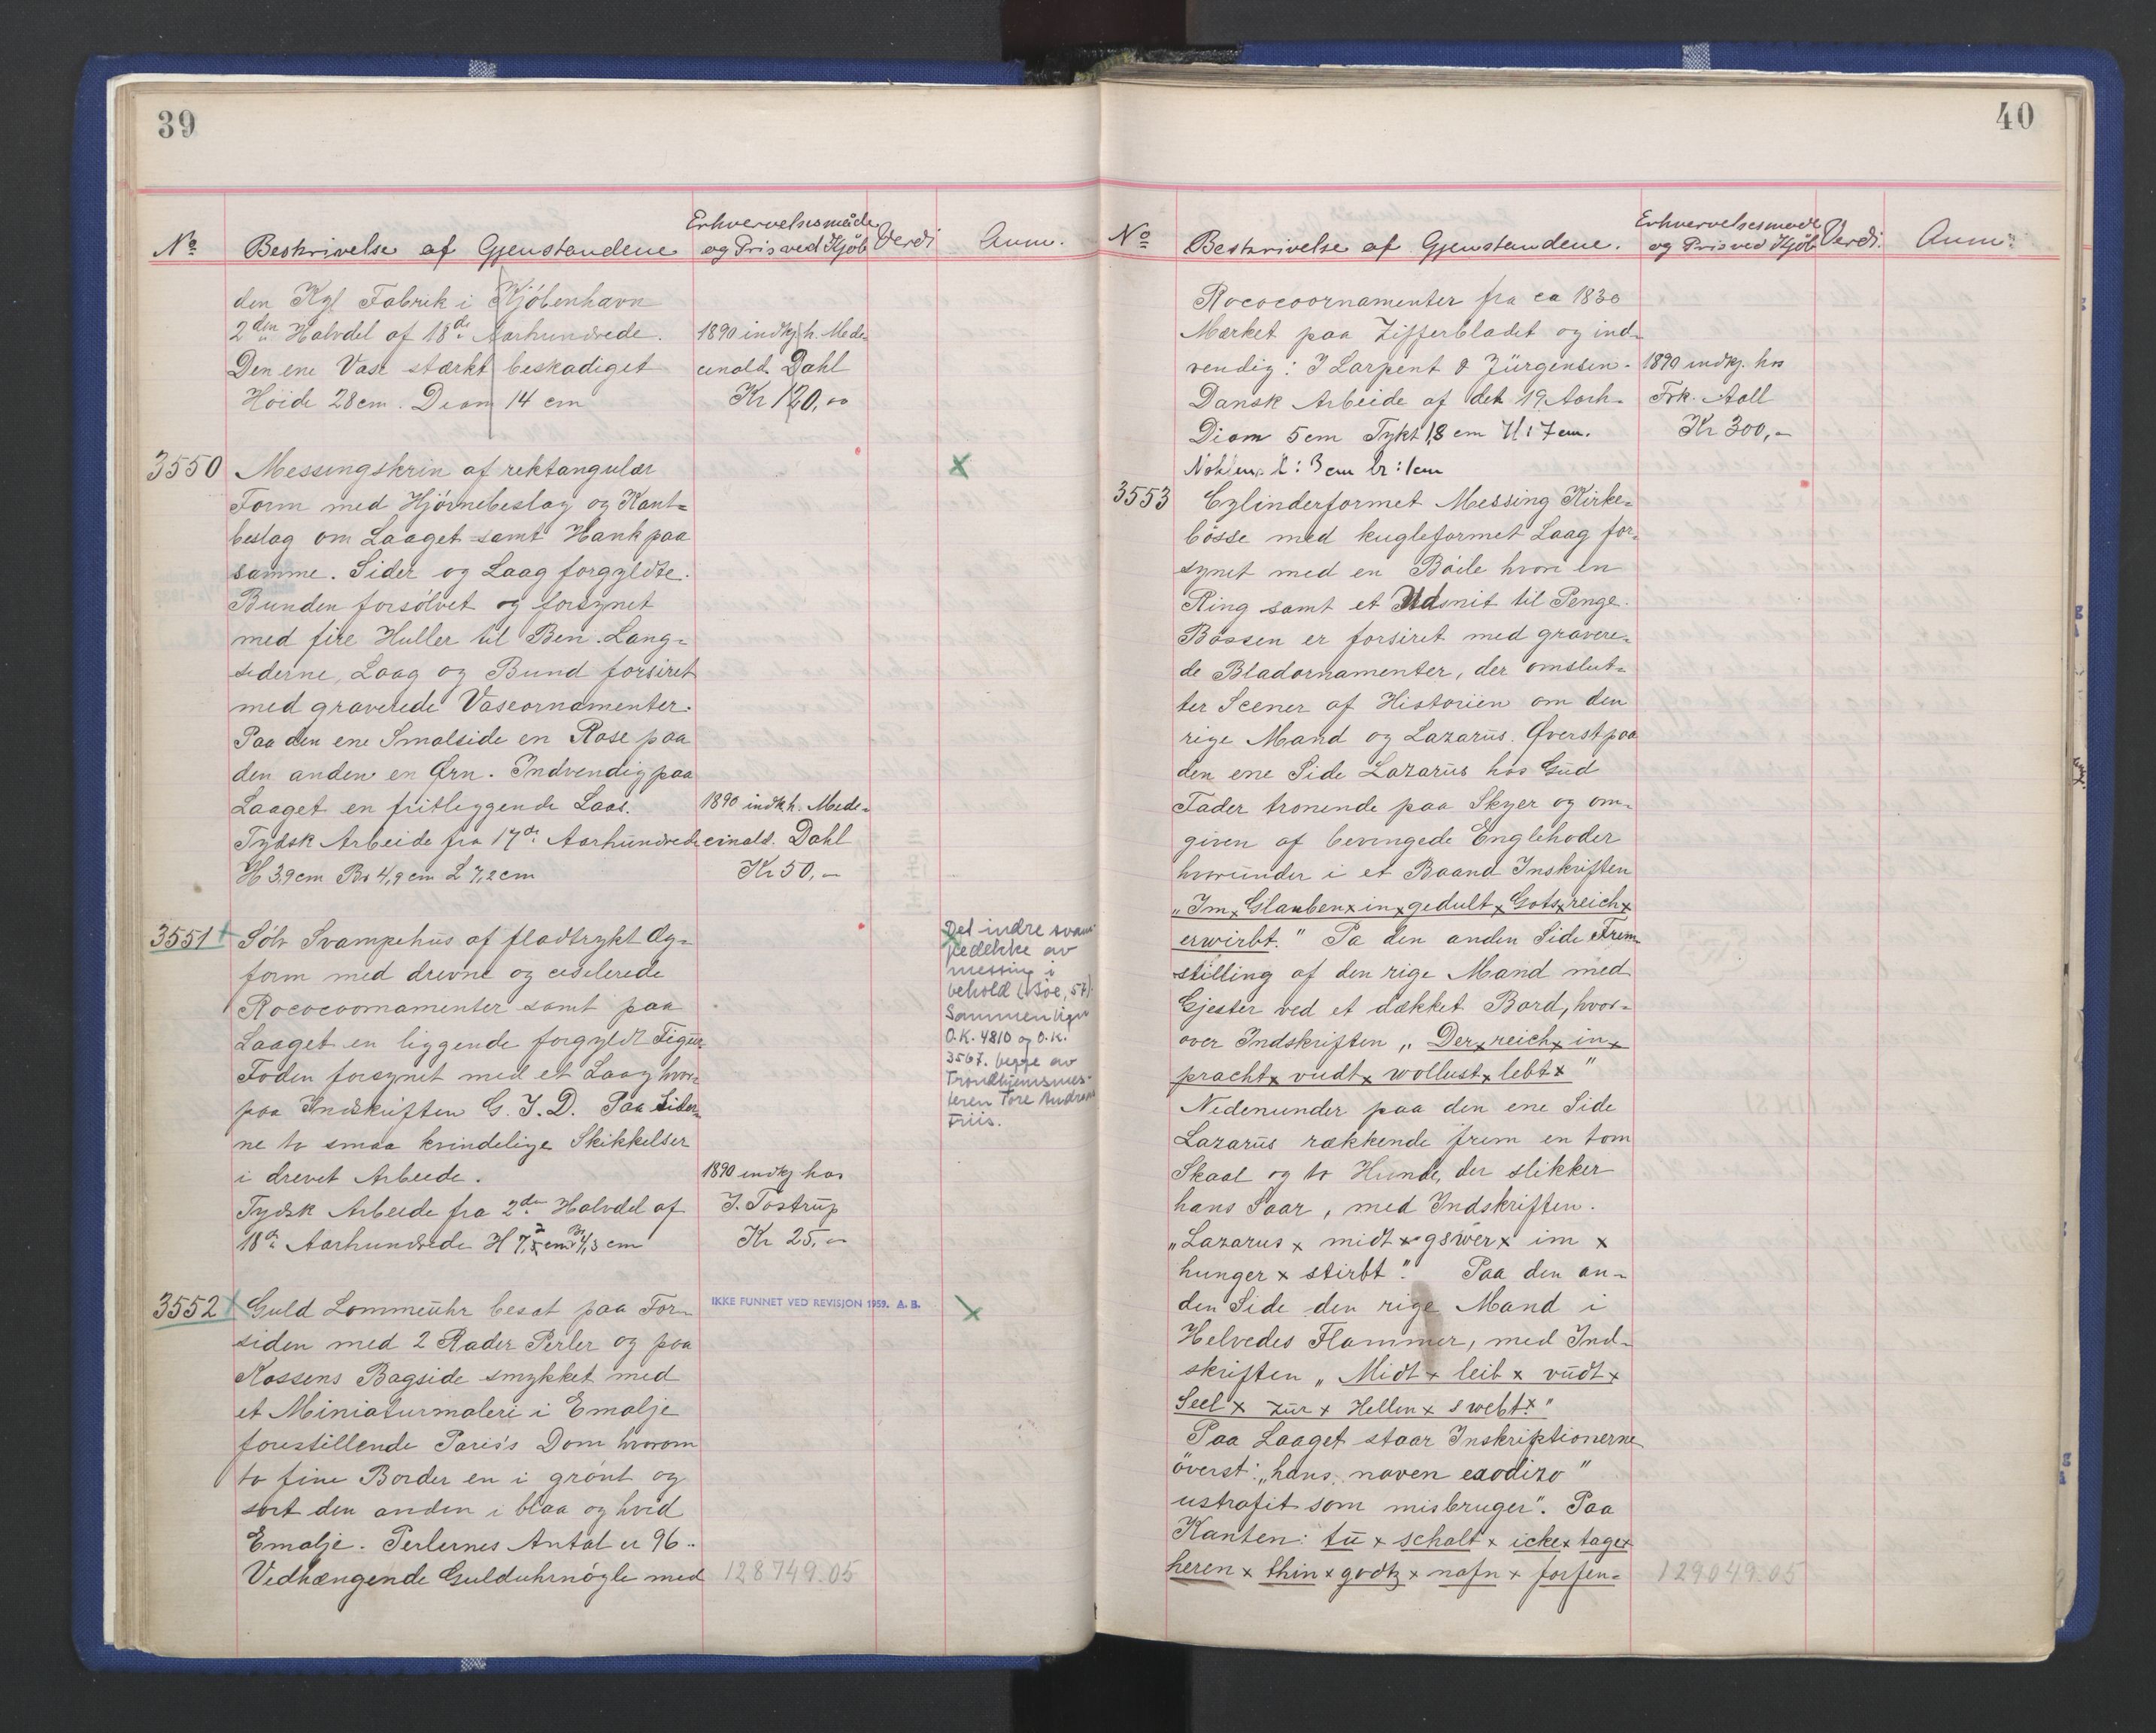 39
No
Beskrivelse af Gjenstandene
Erhvervelsesmåde
og Pris ved Kjøb
Verdi
Anm.
den Kgl Fabrik i Kjöbenhavn
2den Halvdel af 18de Aarhundrede.
Den ene Vase stærkt beskadiget
Höide 28 cm. Diam 14 cm
1890 indkj h. Mede-
cinald. Dahl
Kr 120,00
3550
Messingskrin af rektangulær
Form med Hjörnebeslag og Kant=
beslag om Laaget samt Hank paa
samme. Sider og Laag forgyldte.
Bunden forsölvet og forsynet
med fire Huller til Ben. Lang=
siderne, Laag og Bund forsiret
med graverede Vaseornamenter.
Paa den ene Smalside en Rose paa
den anden en Ørn. Indvendig paa
Laaget en fritliggende Laas.
Tydsk Arbeide fra 17de Aarhundrede
H 3,9 cm Br 4,9 cm L 7,2 cm
1890 indk h. Mede-
cinald. Dahl
Kr 50,-
x
3551
Sölv Svampehus af fladtrykt Æg=
form med drevne og ciselerede
Rococoornamenter samt paa
Laaget en liggende forgyldt Figur
Foden forsynet med et Laag hvor=
paa Indskriften G. J. D. Paa Sider=
ne to smaa kvindelige Skikkelser
i drevet Arbeide.
Tydsk Arbeide fra 2den Halvdel af
18de Aarhundrede H 7,5 cm Br 4,3 cm
1890 indkj hos
J. Tostrup
Kr 25,00
Det indre svam
pedekke av
messing i
behold (Bøe, 57).
Sammenlign
O.K. 4810 og O.K.
3567. begge av
Trondhjemsmes-
teren Tore Andreas
Friis.
3552
Guld Lommeuhr besat paa For=
siden med 2 Rader Perler og paa
Kassens Bagside smykket med
et Miniaturmaleri i Emalje
forestillende Paris's Dom hvorom
to fine Border en i grönt og
sort den anden i blaa og hvid
Emalje. Perlernes Antal er 96.
Vedhængende Gulduhrnögle med
IKKE FUNNET VED REVISJON 1959. A. B.
x
128749.05
40
No
Beskrivelse af Gjenstandene.
Erhvervelsesmode
og Pris ved Kjöb
Verdi.
Anm.
Rococoornamenter fra ca 1830
Mærket paa Zifferbladet og ind=
vendig: J Larpent & Jürgensen.
Dansk Arbeide af det 19 Aarh.
Diam 5 cm Tykt 1,8 cm H: 7 cm.
Nöklens l: 3 cm br: 1 cm
1890 indkj. hos
Frk. Aall
Kr 300,-
3553
Cylinderformet Messing Kirke=
bösse med kugleformet Laag for=
synet med en Böile hvori en
Ring samt et Udsnit til Penge.
Bössen er forsiret med gravere=
de Bladornamenter, der omslut=
ter Scener af Historien om den
rige Mand og Lazarus. Øverst paa
den ene Side Lazarus hos Gud
Fader tronende paa Skyer og om=
given af bevingede Englehoder
hvorunder i et Baand Inskriften
"Im x Glauben x in x gedult x Gots x reich x
erwirbt." Pa den anden Side Frem
stilling af den rige Mand med
Gjester ved et dækket Bord, hvor=
over Indskriften "Der x reich x in x
pracht x vudt x wollust x lebt x"
Nedenunder paa den ene Side
Lazarus rækkende frem en tom
Skaal og to Hunde, der slikker
hans Saar, med Indskriften.
"Lazarus x midt x gswer x im x
hunger x stirbt". Paa den an=
den Side den rige Mand i
Helvedes Flammer, med Ind=
skriften "Midt x leib x vudt x
Seel x zur x Hellen x swebt x"
Paa Laaget staar Inskriptionerne
överst: "hans naven exodizo"
ustrafit som misbruger". Paa
Kanten: tu x schalt x icke x tage x
heren x thin x godtz x nafn x forfen=
129049.05